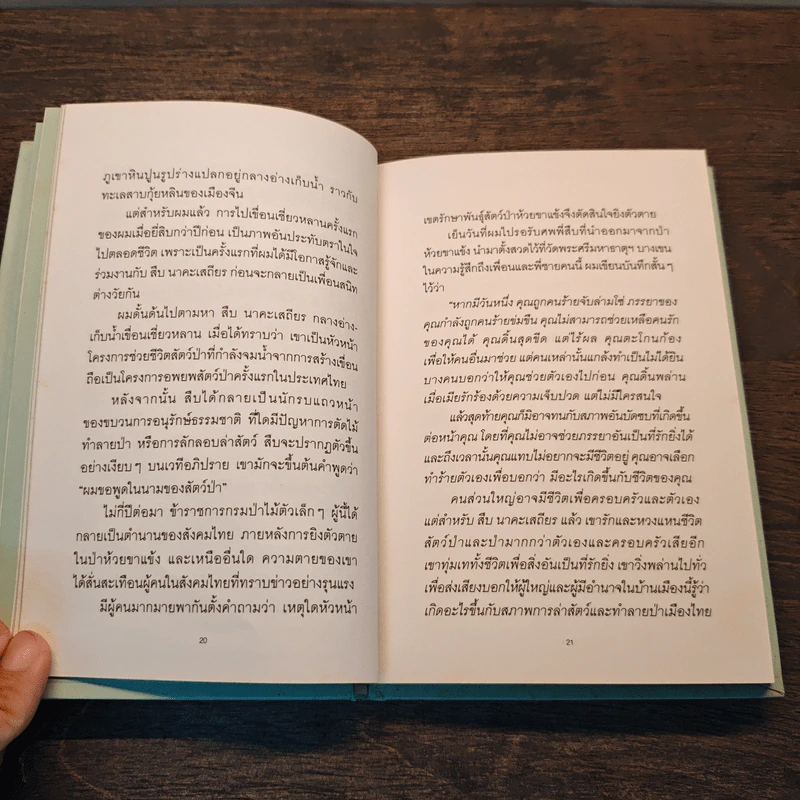 ภูเขาหินปูนรูปร่างแปลกอยู่กลางอ่างเก็บน้ำ ราวกับ
ทะเลสาบกุ้ยหลินของเมืองจีน
แต่สำหรับผมแล้ว การไปเขื่อนเชี่ยวหลานครั้งแรก
ของผมเมื่อยี่สิบกว่าปีก่อน เป็นภาพอันประทับตราในใจ
ไปตลอดชีวิต เพราะเป็นครั้งแรกที่ผมได้มีโอกาสรู้จักและ
ร่วมงานกับ สืบ นาคะเสถียร ก่อนจะกลายเป็นเพื่อนสนิท
ต่างวัยกัน
ผมดั้นด้นไปตามหา สืบ นาคะเสถียร กลางอ่าง-
เก็บน้ำเขื่อนเชี่ยวหลาน เมื่อได้ทราบว่า เขาเป็นหัวหน้า
โครงการช่วยชีวิตสัตว์ป่าที่กำลังจมน้ำจากการสร้างเขื่อน
ถือเป็นโครงการอพยพสัตว์ป่าครั้งแรกในประเทศไทย
หลังจากนั้น สืบได้กลายเป็นนักรบแถวหน้า
ของขบวนการอนุรักษ์ธรรมชาติ ที่ใดมีปัญหาการตัดไม้
ทำลายป่า หรือการลักลอบล่าสัตว์ สืบจะปรากฏตัวขึ้น
อย่างเงียบๆ บนเวทีอภิปราย เขามักจะขึ้นต้นคำพูดว่า
“ผมขอพูดในนามของสัตว์ป่า”
ไม่กี่ปีต่อมา ข้าราชการกรมป่าไม้ตัวเล็กๆ ผู้นี้ได้
กลายเป็นตำนานของสังคมไทย ภายหลังการยิงตัวตาย
ในป่าห้วยขาแข้ง และเหนืออื่นใด ความตายของเขา
ได้สั่นสะเทือนผู้คนในสังคมไทยที่ทราบข่าวอย่างรุนแรง
มีผู้คนมากมายพากันตั้งคำถามว่า เหตุใดหัวหน้า
20
เขตรักษาพันธุ์สัตว์ป่าห้วยขาแข้งจึงตัดสินใจยิงตัวตาย
เย็นวันที่ผมไปรอรับศพพี่สืบที่นำออกมาจากป่า
ห้วยขาแข้ง นำมาตั้งสวดไว้ที่วัดพระศรีมหาธาตุฯ บางเขน
ในความรู้สึกถึงเพื่อนและพี่ชายคนนี้ ผมเขียนบันทึกสั้นๆ
ไว้ว่า
“หากมีวันหนึ่ง คุณถูกคนร้ายจับล่ามโซ่ ภรรยาของ
คุณกำลังถูกคนร้ายข่มขืน คุณไม่สามารถช่วยเหลือคนรัก
ของคุณได้ คุณดิ้นสุดขีด แต่ไร้ผล คุณตะโกนก้อง
เพื่อให้คนอื่นมาช่วย แต่คนเหล่านั้นแกล้งทำเป็นไม่ได้ยิน
บางคนบอกว่าให้คุณช่วยตัวเองไปก่อน คุณดิ้นพล่าน
เมื่อเมียรักร้องด้วยความเจ็บปวด แต่ไม่มีใครสนใจ
แล้วสุดท้ายคุณก็มิอาจทนกับสภาพอันบัดซบที่เกิดขึ้น
ต่อหน้าคุณ โดยที่คุณไม่อาจช่วยภรรยาอันเป็นที่รักยิ่งได้
และถึงเวลานั้นคุณแทบไม่อยากจะมีชีวิตอยู่ คุณอาจเลือก
ทำร้ายตัวเองเพื่อบอกว่า มีอะไรเกิดขึ้นกับชีวิตของคุณ
คนส่วนใหญ่อาจมีชีวิตเพื่อครอบครัวและตัวเอง
แต่สำหรับ สืบ นาคะเสถียร แล้ว เขารักและหวงแหนชีวิต
สัตว์ป่าและป่ามากกว่าตัวเองและครอบครัวเสียอีก
เขาทุ่มเททั้งชีวิตเพื่อสิ่งอันเป็นที่รักยิ่ง เขาวิ่งพล่านไปทั่ว
เพื่อส่งเสียงบอกให้ผู้ใหญ่และผู้มีอำนาจในบ้านเมืองนี้รู้ว่า
เกิดอะไรขึ้นกับสภาพการล่าสัตว์และทำลายป่าเมืองไทย
21